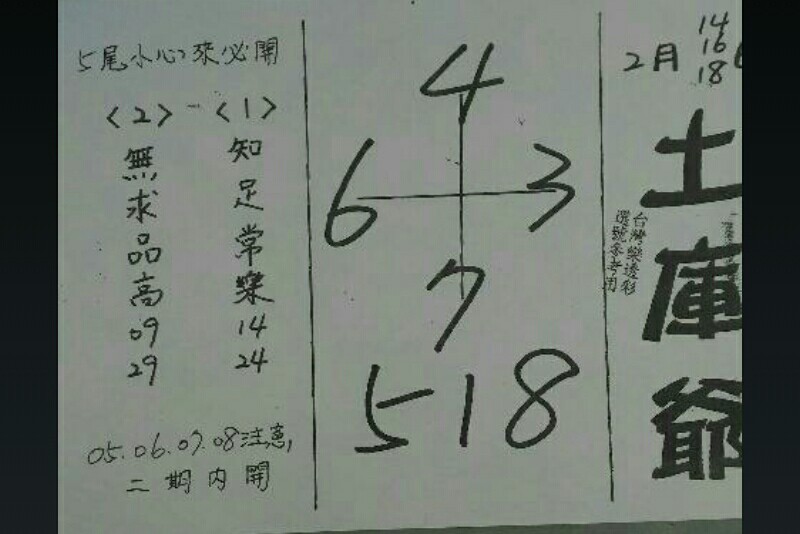 5尾小心來必開
<2> - <1>
知足常樂
14
24
無求品高
09
29
05.06.07.08注意,
二期內開
4
6 3
7
518
2月 14 16 18
土庫爺
台灣樂透彩
選號參考用